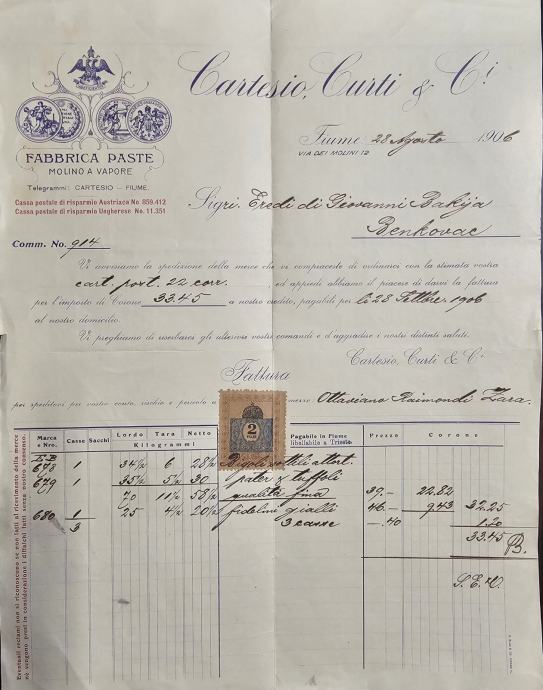 Cartesio, Curti & Ci
Fiume 28 Agosto 1906
VIA DEI MOLINI 12
FABBRICA PASTE
MOLINO A VAPORE
Telegrammi: CARTESIO – FIUME.
Cassa postale di risparmio Austriaca No. 859.412
Cassa postale di risparmio Ungherese No. 11.351
Sigri. Eredi di Giovanni Bakija
Benkovac
Comm. No. 914
Vi avvisiamo la spedizione della merce che vi compiaceste di ordinarci con la stimata vostra
cart. post. 22 corr. ed appiedi abbiamo il piacere di darvi la fattura
per l'importo di Corone 33.45 a nostro credito, pagabili per li 28 Settbre. 1906
al nostro domicilio.
Vi preghiamo di riserbarci gli ulteriori vostri comandi e d'aggradire i nostri distinti saluti.
Cartesio, Curti & Ci
Fattura
per speditovi per vostro conto, rischio e pericolo a mezzo Ottaviano Raimondi Zara.
2
Marca e Nro. Casse Sacchi Lordo Tara Netto Pagabile in Fiume Prezzo Corone
Kilogrammi libellabile a Trieste
678 1 34½ 6 28½
679 1 35½ 5½ 30 pater & tuffoli
70 11½ 58½ qualità fina 39.– 22.82
680 1 25 4½ 20½ fidelini gialli 46.– 9.43 32.25
3 3 casse –.40 1.20
33.45
S. E. &. O.
Eventuali reclami non si riconoscono se non fatti al ricevimento della merce
nè vengono presi in considerazione i diffalchi fatti senza nostro consenso.